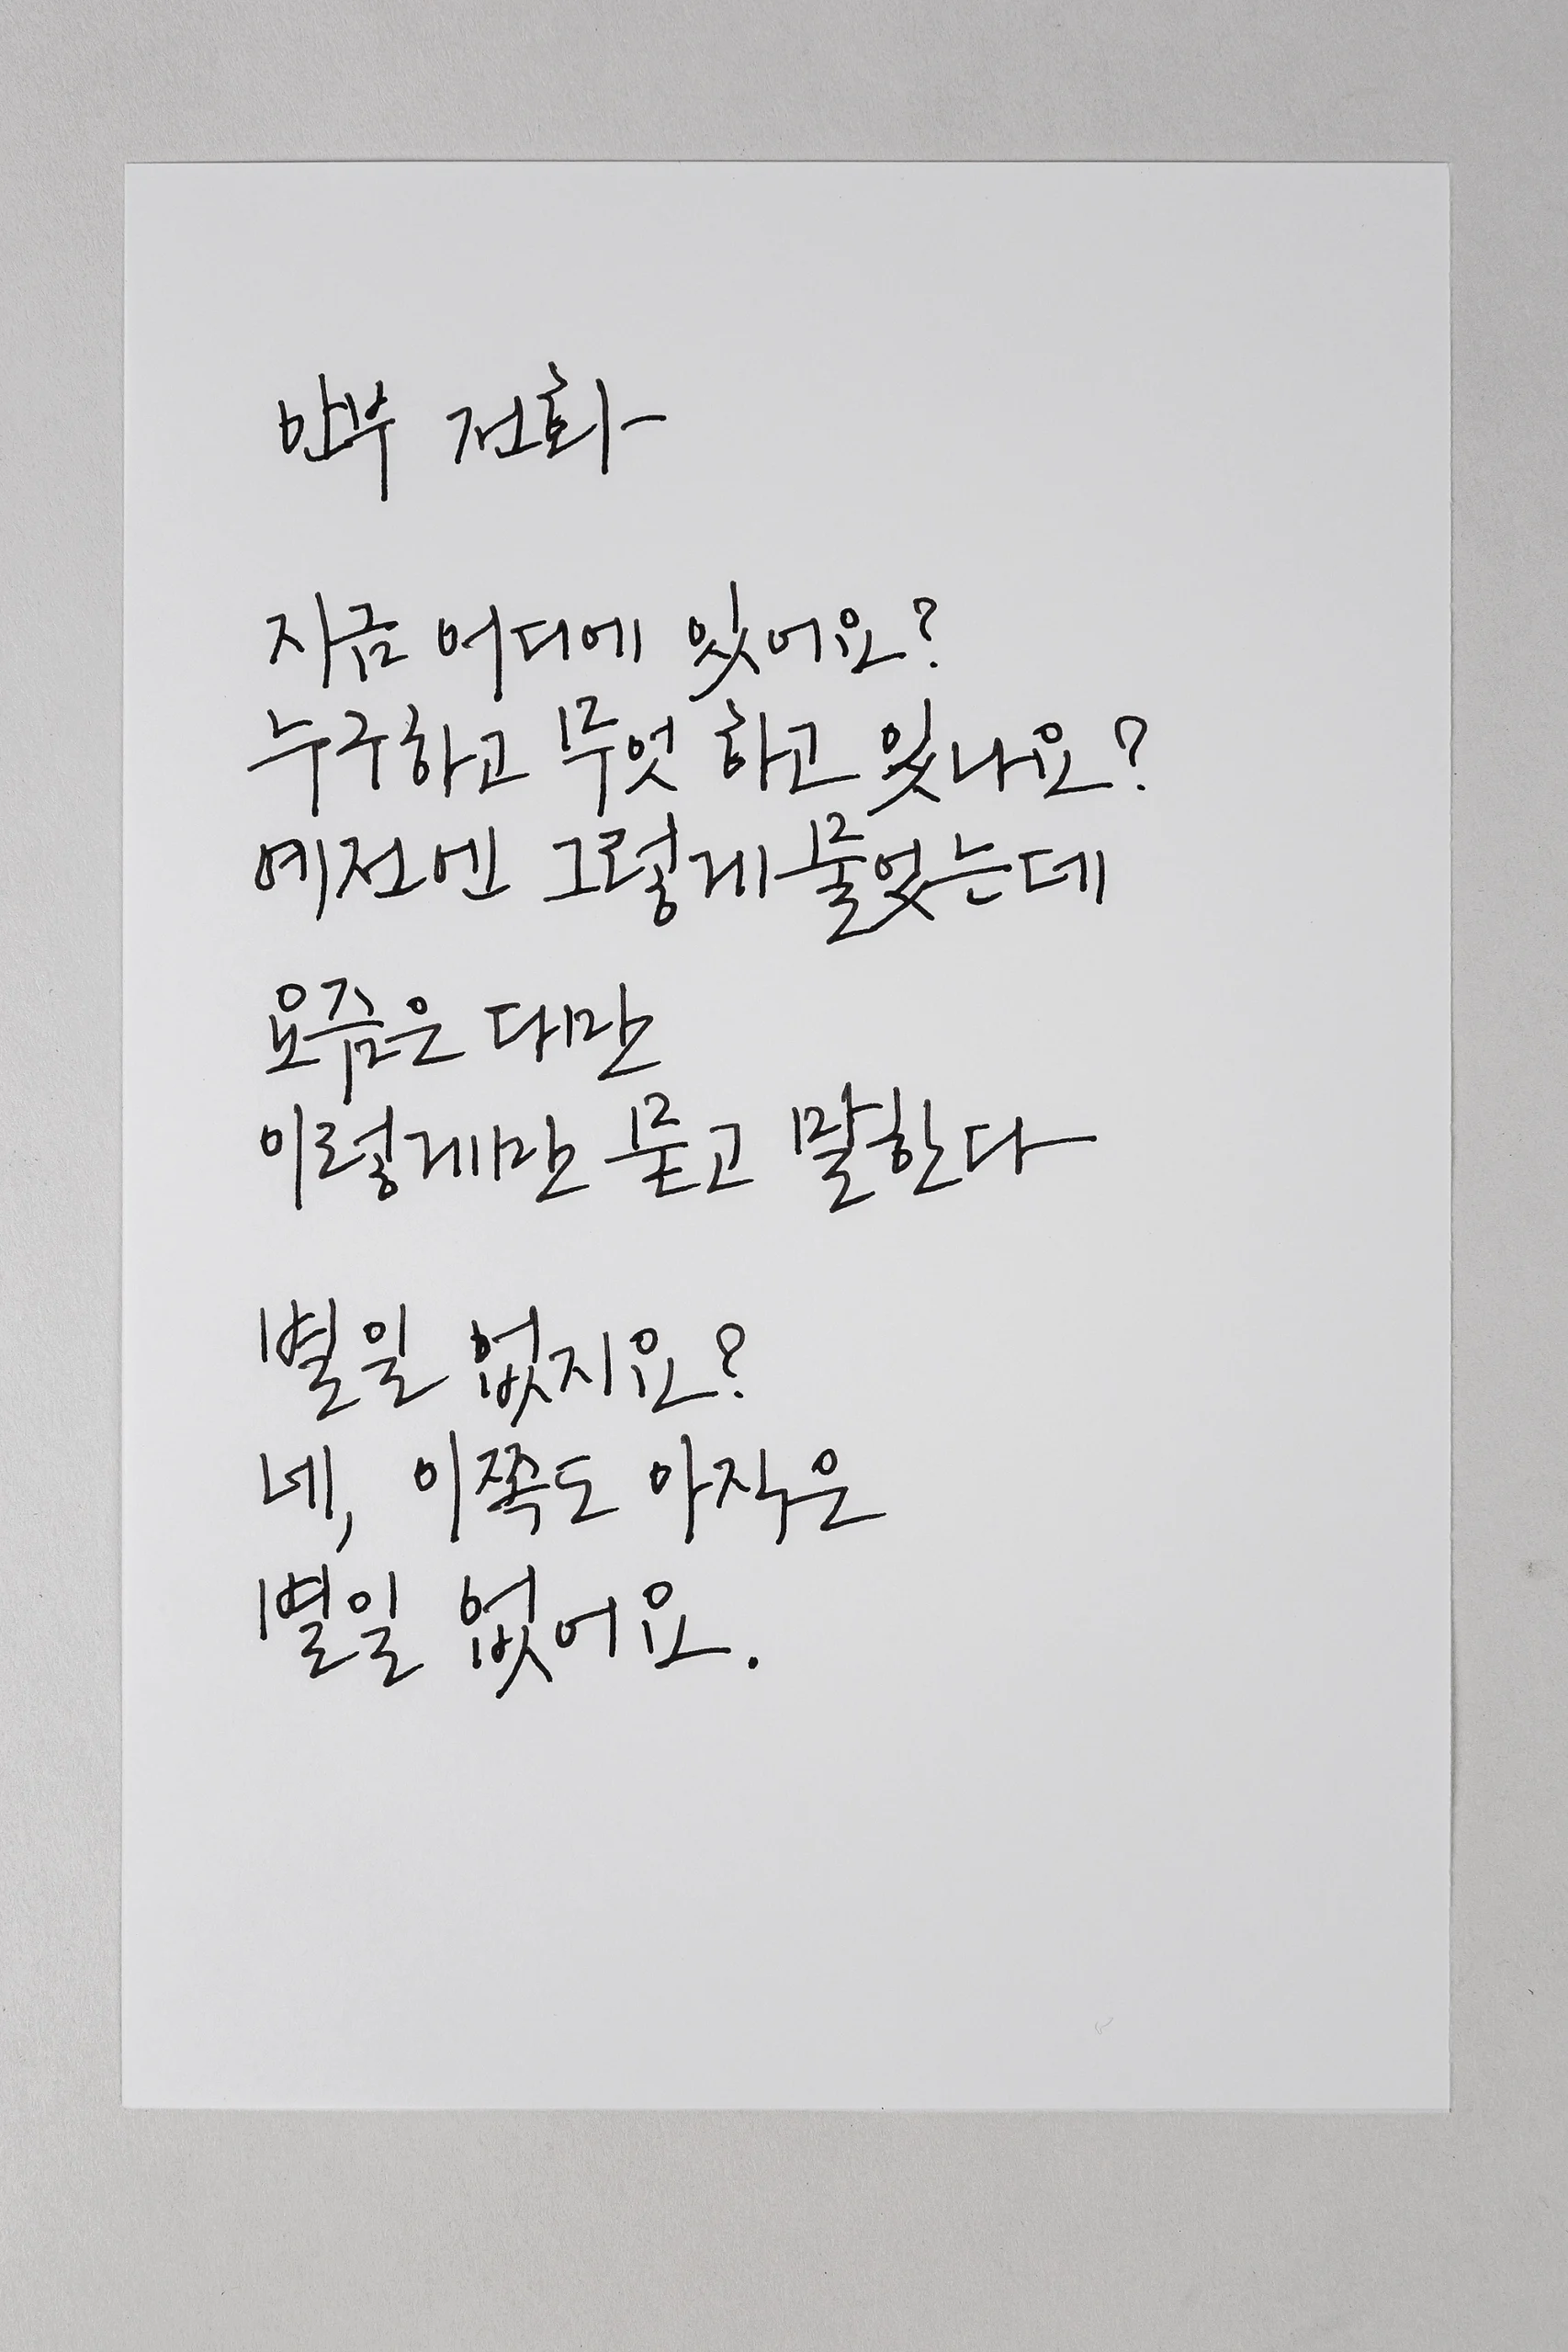 안부 전화
지금 어디에 있어요?
누구하고 무엇 하고 있나요?
예전엔 그렇게 물었는데
요즘은 다만
이렇게만 묻고 말한다
별일 없지요?
네, 이쪽도 아직은
별일 없어요.